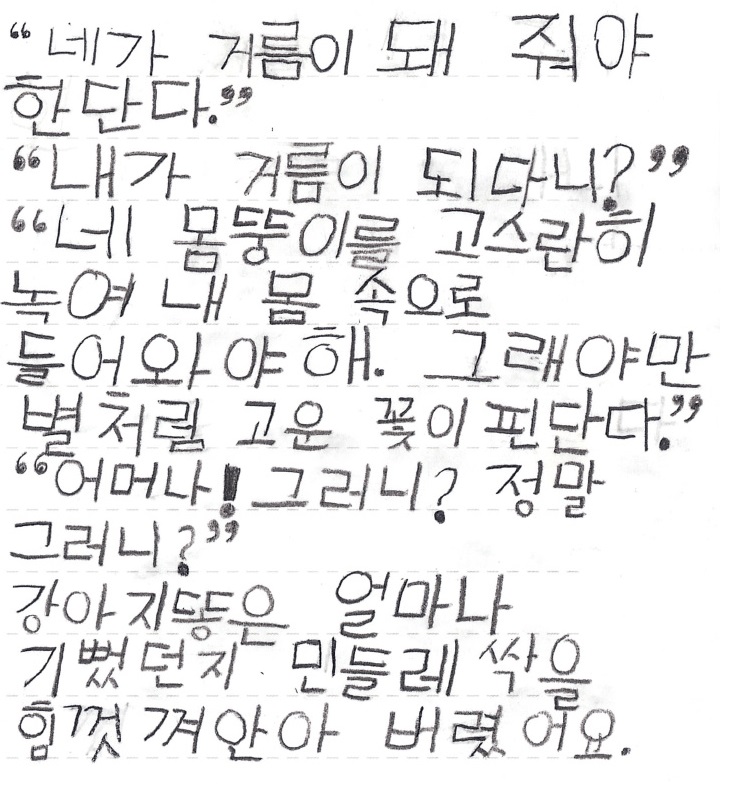 “네가 거름이 돼 줘야
한단다.”
“내가 거름이 되다니?”
“네 몸뚱이를 고스란히
녹여 내 몸 속으로
들어와야해. 그래야만
별처럼 고운 꽃이 핀단다.”
“어머나! 그러니? 정말
그러니?”
강아지똥은 얼마나
기뻤던지 민들레 싹을
힘껏 껴안아 버렸어요.